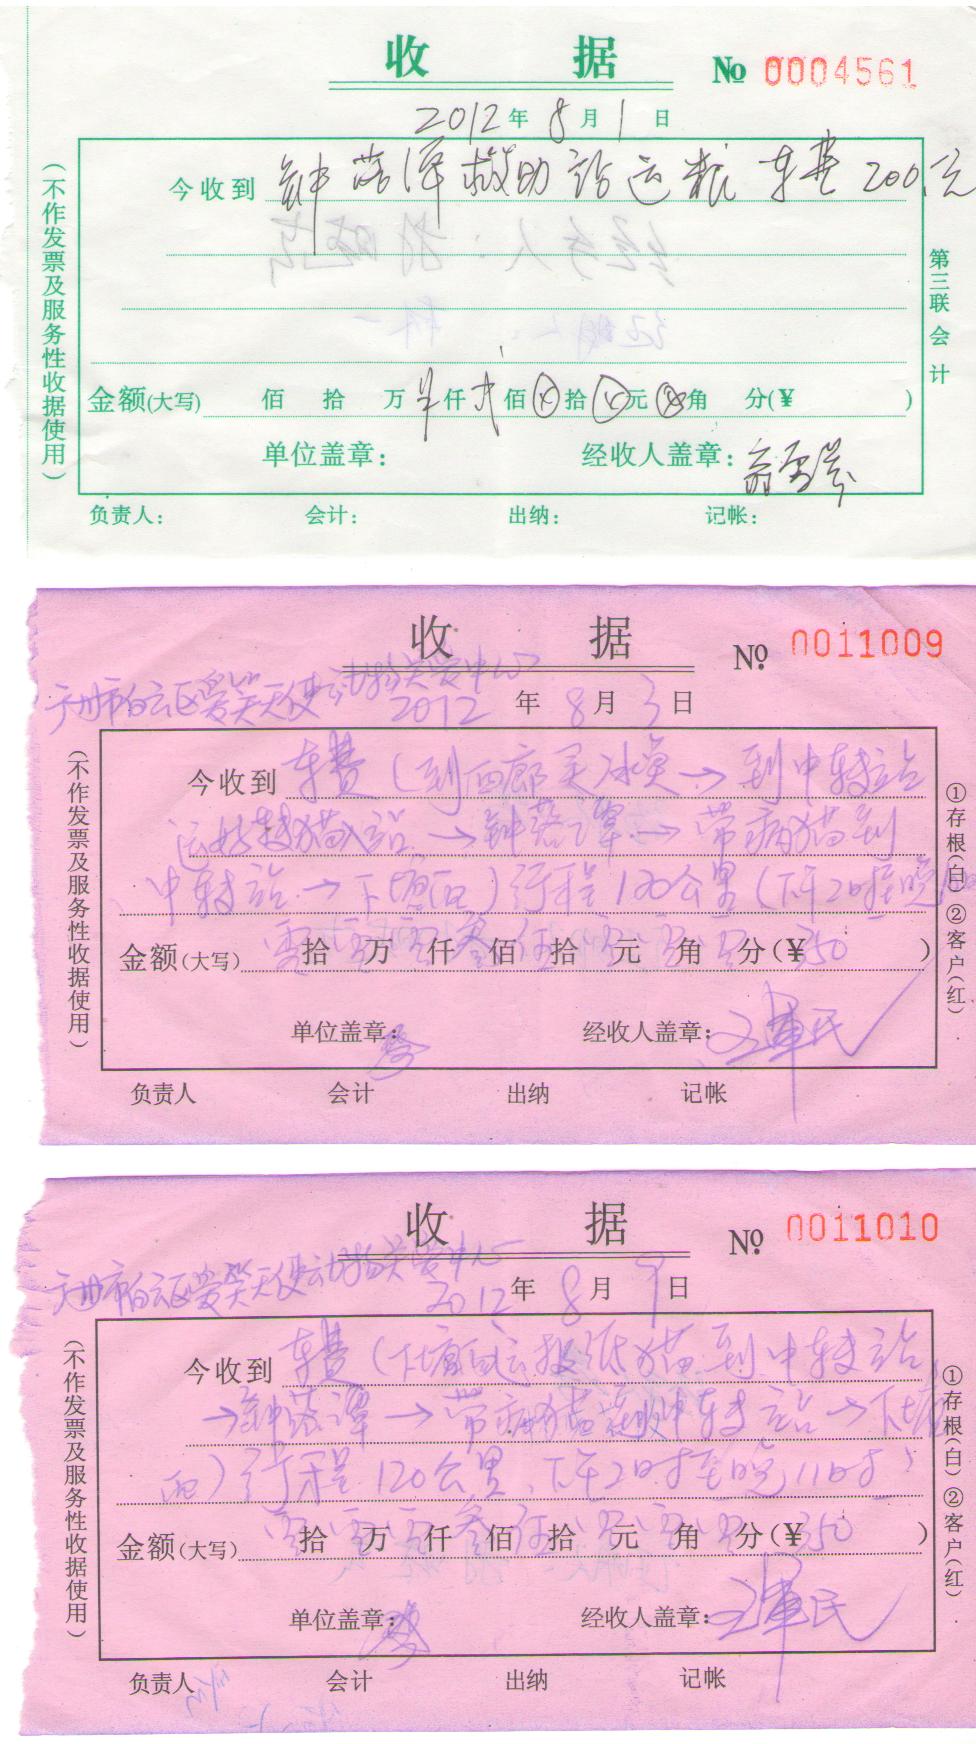 收据 No 0004561
2012年8月1日
今收到 钟落潭救助站运粮车费200.元
金额(大写) 佰 拾 万 仟 贰 佰 拾 元 角 分(¥ )
单位盖章: 经收人盖章:
负责人: 会计: 出纳: 记帐:
(不作发票及服务性收据使用)
第三联会计
收据 No 0011009
广州市白云区爱笑天使动物关爱中心
2012年8月3日
今收到 车费(到西郎买冰 → 到中转站
运 猫 站 → 钟落潭 → 带病猫到
中转站 → 下塘西)行程120公里(下午2时至晚
金额(大写) 零 拾 零 万 零 仟 叁 佰 伍 拾 零 元 零 角 零 分(¥ 350 )
单位盖章: 经收人盖章: 王華民
负责人 会计 出纳 记帐
(不作发票及服务性收据使用)
①存根(白)②客户(红)
收据 No 0011010
广州市白云区爱笑天使动物关爱中心
2012年8月9日
今收到 车费(下塘西运报纸 猫到中转站
→ 钟落潭 → 带病猫 中转站 → 下塘
西)行程120公里 下午2时至晚11时
金额(大写) 零 拾 零 万 零 仟 叁 佰 伍 拾 零 元 零 角 零 分(¥ 350 )
单位盖章: 经收人盖章: 王華民
负责人 会计 出纳 记帐
(不作发票及服务性收据使用)
①存根(白)②客户(红)